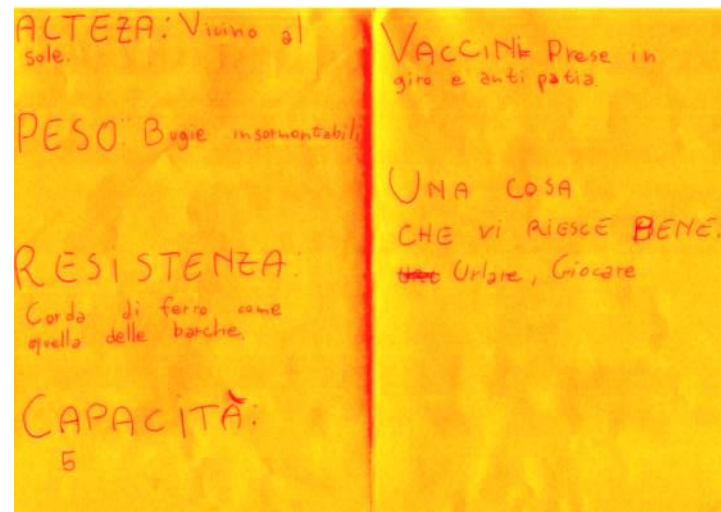 ALTEZA: Vicino al
sole.
PESO: Bugie insormontabili
RESISTENZA:
Corda di ferro come
quella delle barche.
CAPACITÀ:
5
VACCINI= Prese in
giro e antipatia.
UNA COSA
CHE VI RIESCE BENE.
Urlare, Giocare